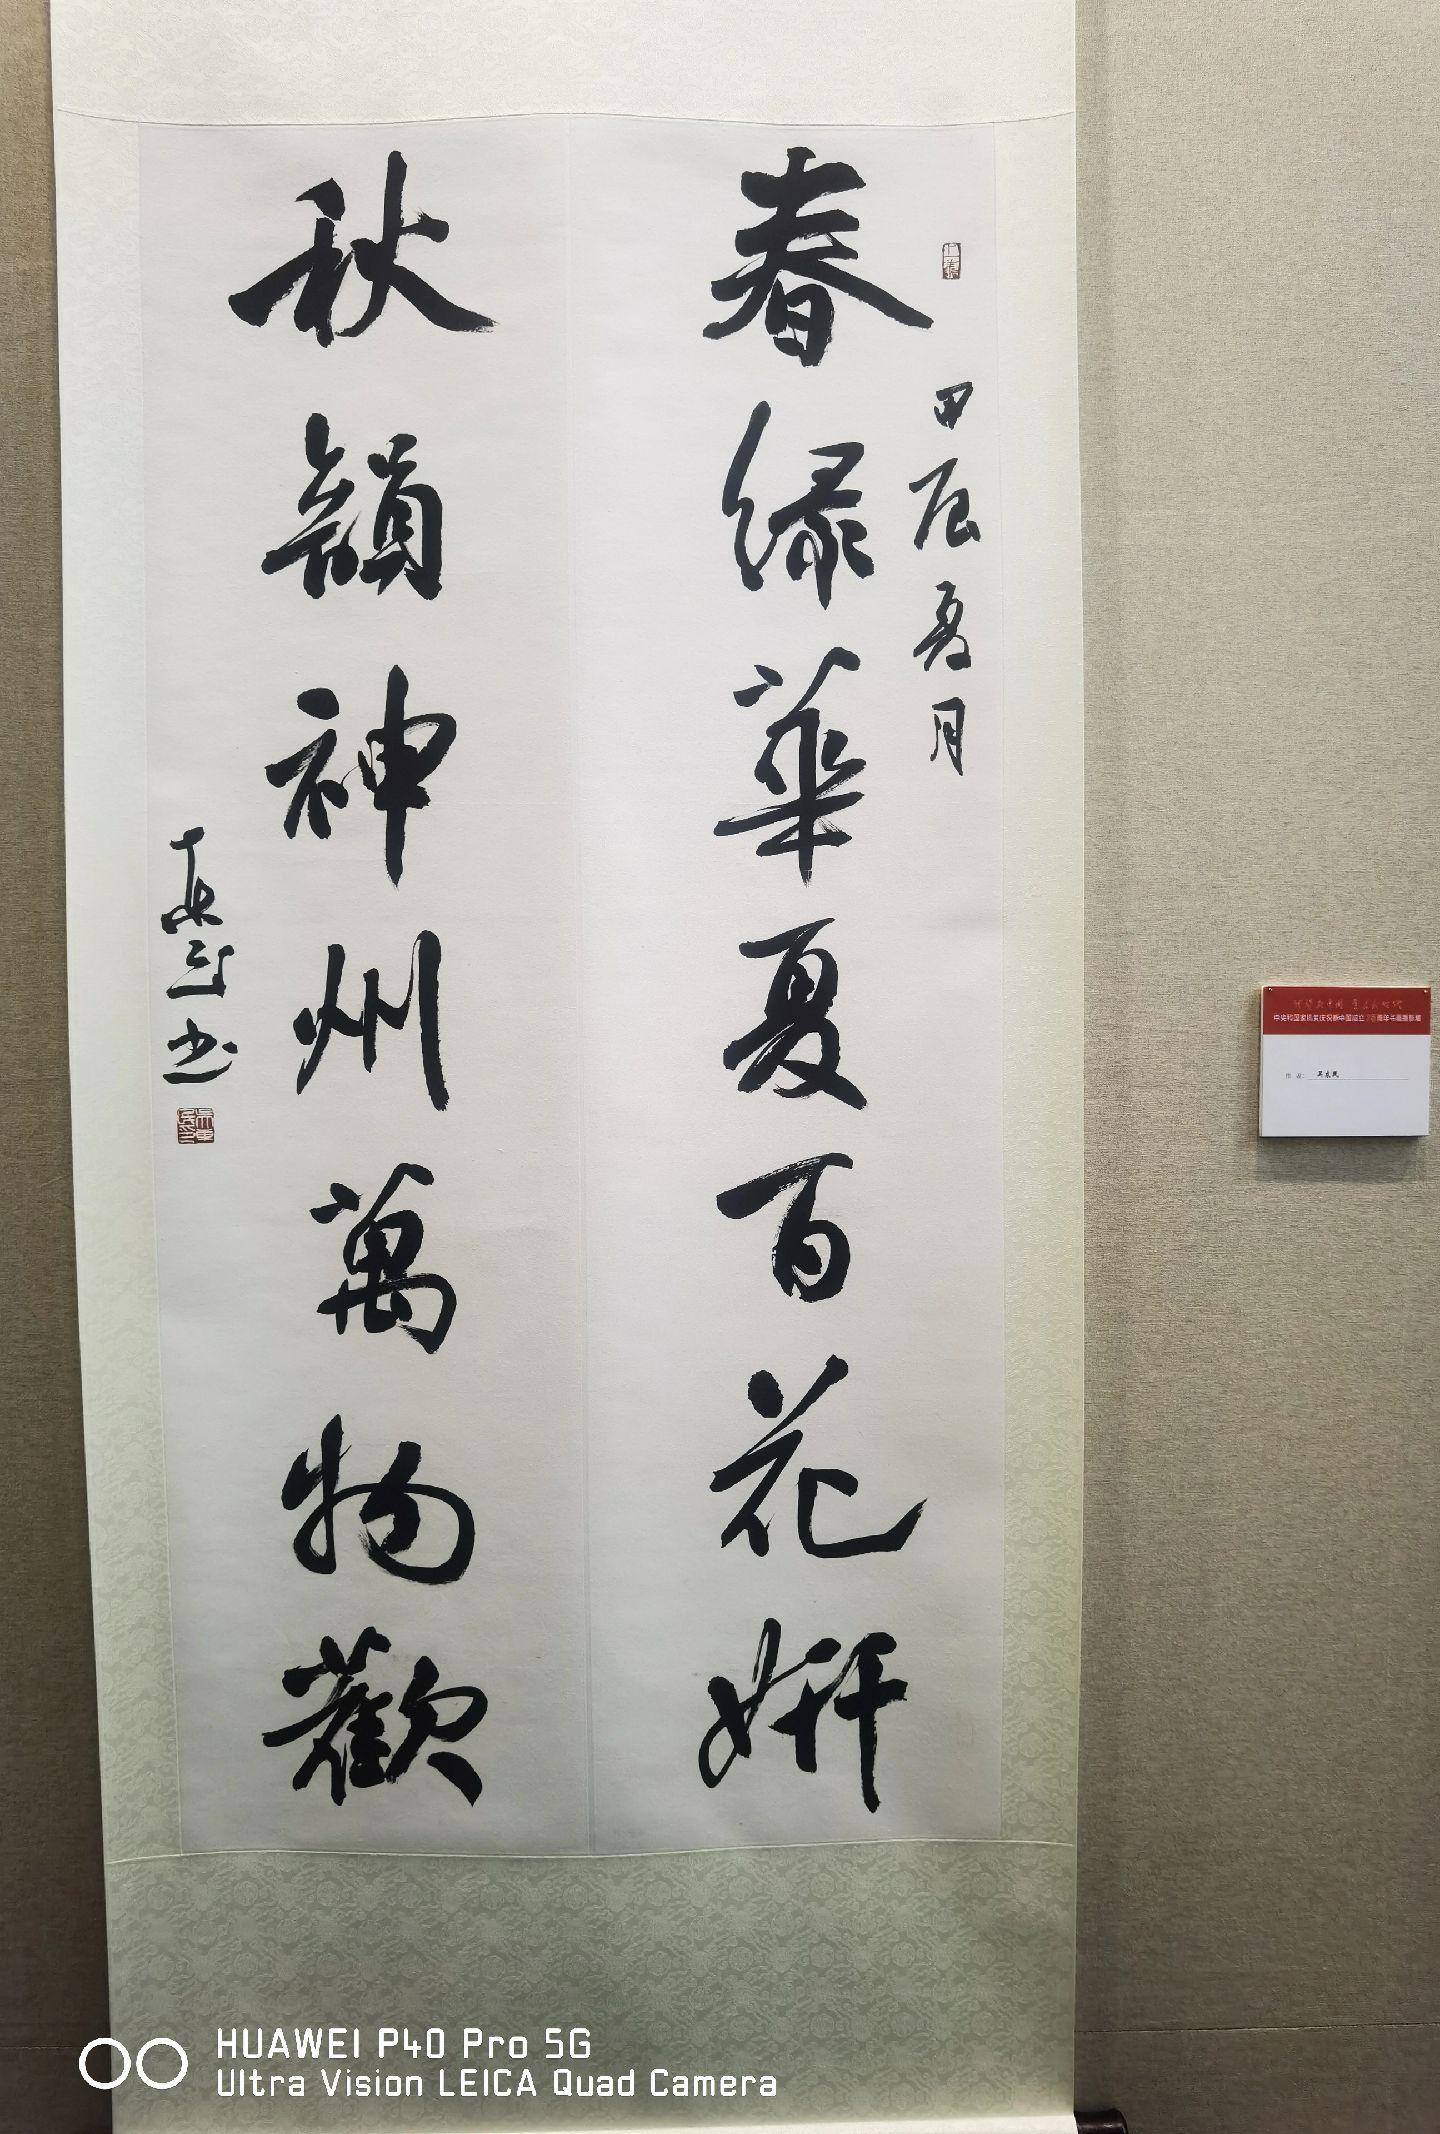 春绿華夏百花妍
甲辰夏月
秋韻神州萬物歡
东民书
中央和国家机关庆祝新中国成立75周年书画摄影展
作者: 吴东民
HUAWEI P40 Pro 5G
Ultra Vision LEICA Quad Camera